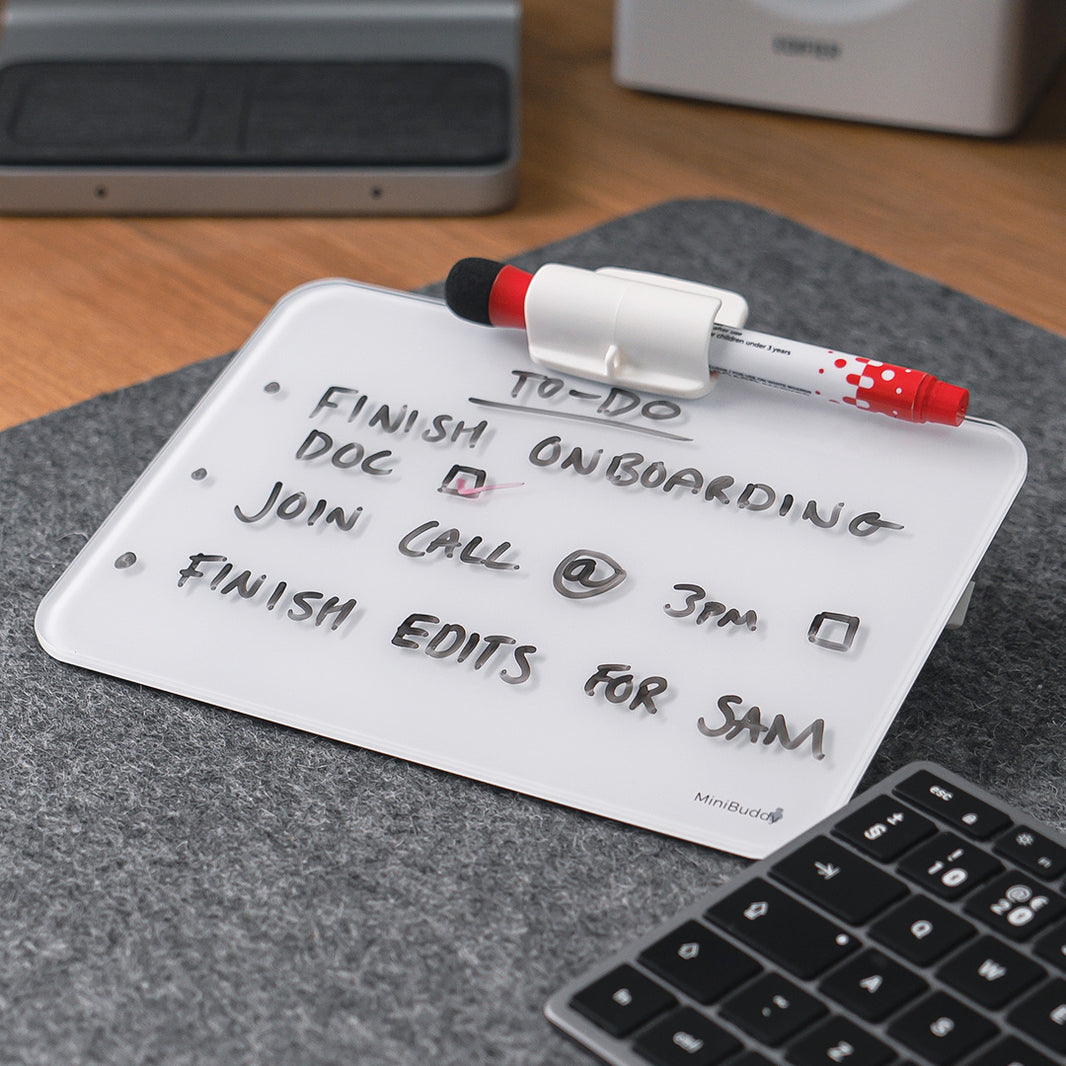 TO-DO
• FINISH ONBOARDING
DOC ☑
• JOIN CALL @ 3PM ☐
• FINISH EDITS FOR SAM
MiniBuddy
after use
children under 3 years
esc
1 !
2 @ €
Q
W
A
S
Z
fn
ctrl